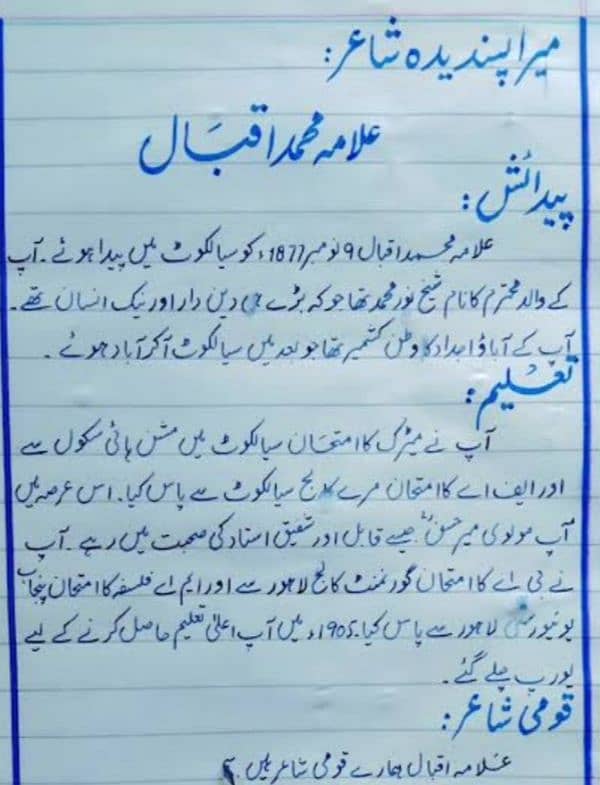 میرا پسندیدہ شاعر:
علامہ محمد اقبال
پیدائش:
علامہ محمد اقبال 9 نومبر 1877ء کو سیالکوٹ میں پیدا ہوئے۔ آپ
کے والد محترم کا نام شیخ نور محمد تھا جو کہ بڑے ہی دین دار اور نیک انسان تھے۔
آپ کے آباؤ اجداد کا وطن کشمیر تھا جو بعد میں سیالکوٹ آکر آباد ہوئے۔
تعلیم:
آپ نے میٹرک کا امتحان سیالکوٹ میں مشن ہائی سکول سے
اور ایف اے کا امتحان مرے کالج سیالکوٹ سے پاس کیا۔ اس عرصہ میں
آپ مولوی میر حسنؒ جیسے قابل اور شفیق استاد کی صحبت میں رہے۔ آپ
نے بی اے کا امتحان گورنمنٹ کالج لاہور سے اور ایم اے فلسفہ کا امتحان پنجاب
یونیورسٹی لاہور سے پاس کیا۔ 1905ء میں آپ اعلیٰ تعلیم حاصل کرنے کے لیے
یورپ چلے گئے۔
قومی شاعر:
علامہ اقبال ہمارے قومی شاعر ہیں۔